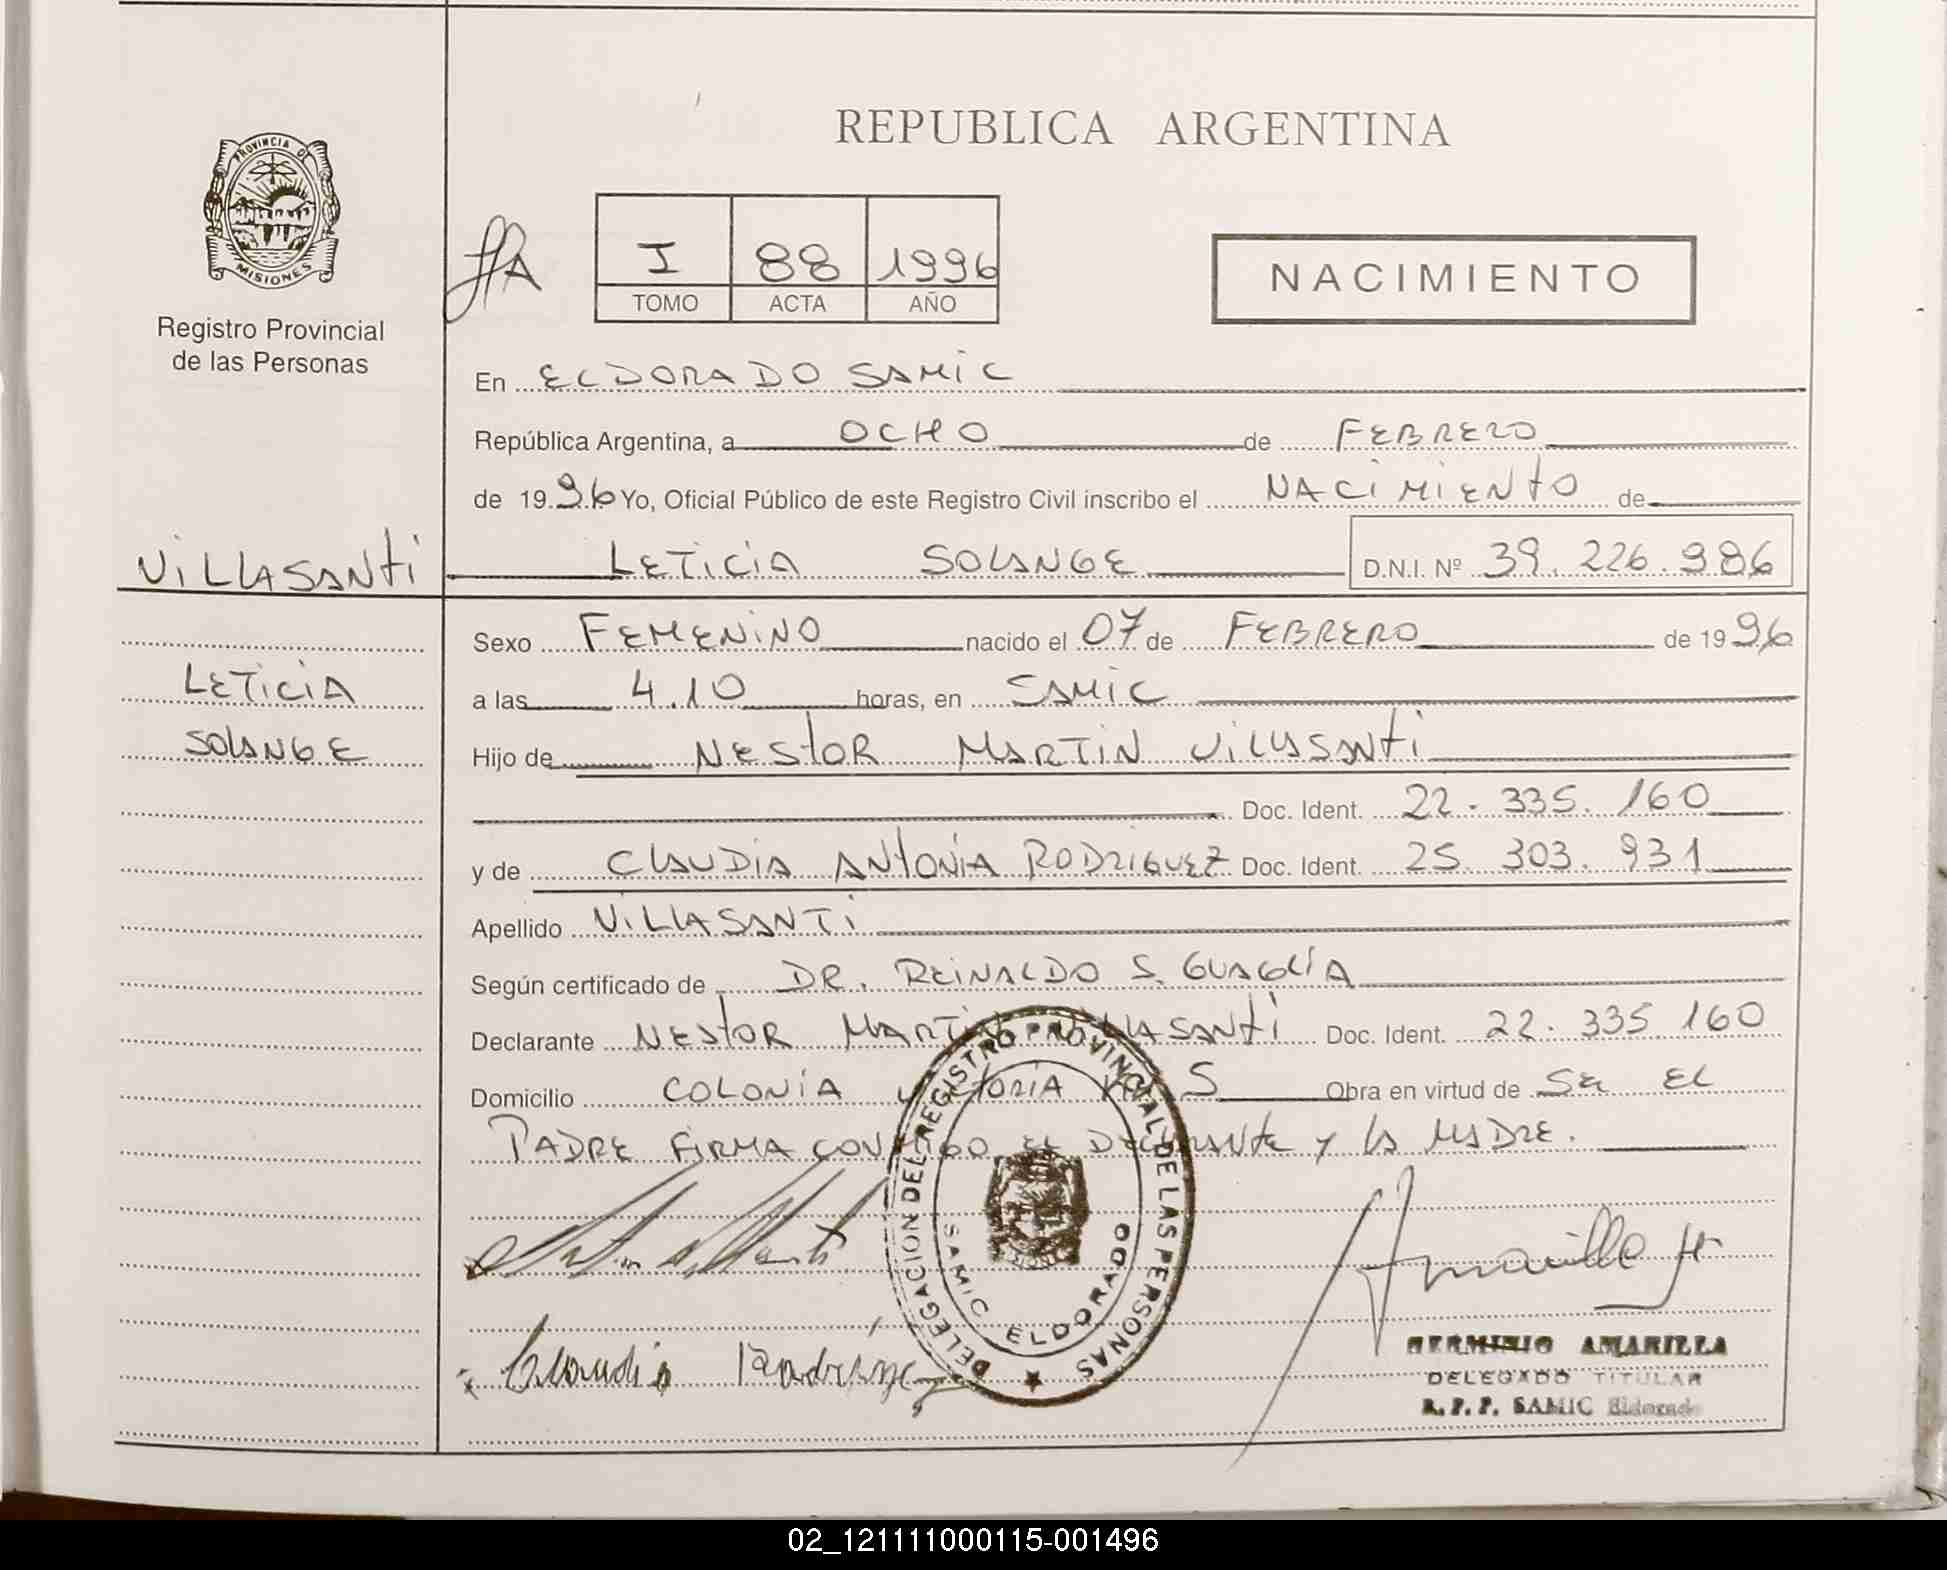 REPUBLICA ARGENTINA
PROVINCIA DE
MISIONES
Registro Provincial
de las Personas
I 88 1996
TOMO ACTA AÑO
NACIMIENTO
En ELDORADO SAMIC
República Argentina, a OCHO de FEBRERO
de 19 96 Yo, Oficial Público de este Registro Civil inscribo el NACIMIENTO de
VILLASANTI
LETICIA SOLANGE D.N.I. Nº 39.226.986
LETICIA
SOLANGE
Sexo FEMENINO nacido el 07 de FEBRERO de 19 96
a las 4.10 horas, en SAMIC
Hijo de NESTOR MARTIN VILLASANTI
Doc. Ident. 22.335.160
y de CLAUDIA ANTONIA RODRIGUEZ Doc. Ident. 25.303.931
Apellido VILLASANTI
Según certificado de DR. REINALDO S. GUAGLIA
Declarante NESTOR MARTIN VILLASANTI Doc. Ident. 22.335 160
Domicilio COLONIA VICTORIA KM 5 Obra en virtud de SER EL
PADRE FIRMA CONMIGO EL DECLARANTE Y LA MADRE.
DELEGACION DEL REGISTRO PROVINCIAL DE LAS PERSONAS
SAMIC ELDORADO
Claudia Rodriguez
HERMINIO AMARILLA
DELEGADO TITULAR
R.P.P. SAMIC Eldorado
02_121111000115-001496